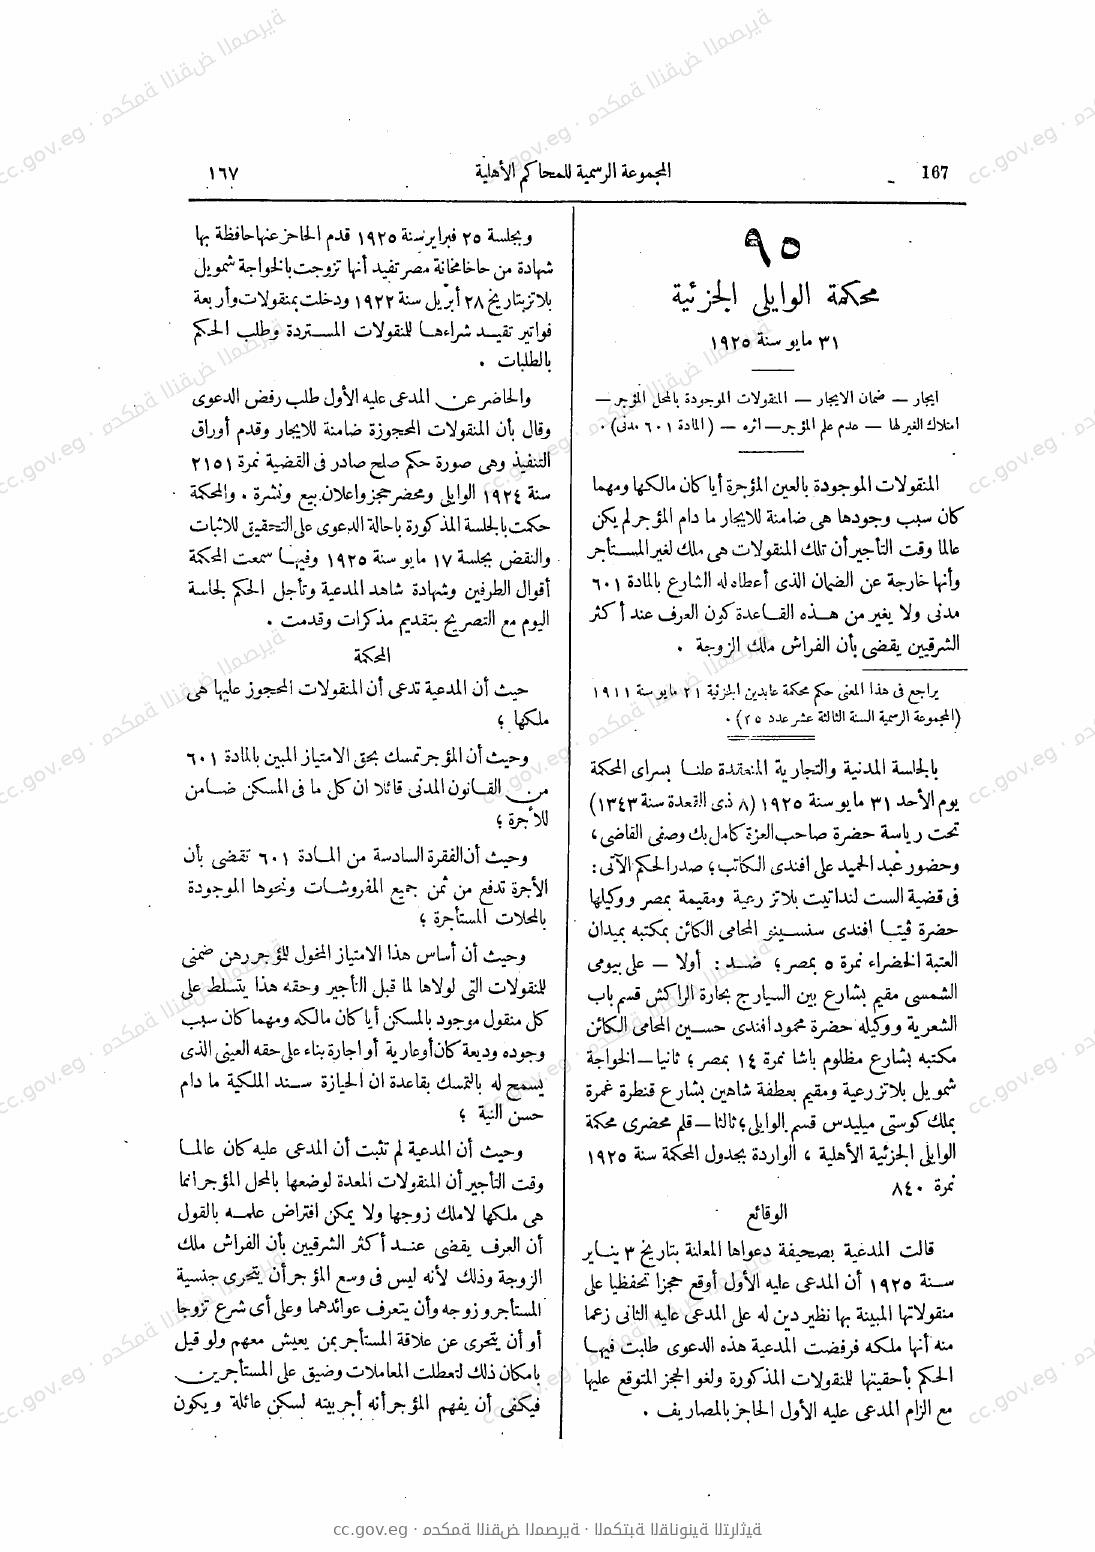 167
المجموعة الرسمية للمحاكم الأهلية
١٦٧
٩٥
محكمة الوايلى الجزئية
٣١ مايو سنة ١٩٢٥
ايجار — ضمان الايجار — المنقولات الموجودة بالمحل المؤجر —
امتلاك الغير لها — عدم علم المؤجر — اثره — (المادة ٦٠١ مدنى) ٠
المنقولات الموجودة بالعين المؤجرة أيا كان مالكها ومهما
كان سبب وجودها هى ضامنة للايجار ما دام المؤجر لم يكن
عالما وقت التأجير أن تلك المنقولات هى ملك لغير المستأجر
وأنها خارجة عن الضمان الذى أعطاه له الشارع بالمادة ٦٠١
مدنى ولا يغير من هذه القاعدة كون العرف عند أكثر
الشرقيين يقضى بأن الفراش ملك الزوجة ٠
يراجع فى هذا المعنى حكم محكمة عابدين الجزئية ٢١ مايو سنة ١٩١١
(المجموعة الرسمية السنة الثالثة عشر عدد ٢٥) ٠
بالجلسة المدنية والتجارية المنعقدة علنا بسراى المحكمة
يوم الأحد ٣١ مايو سنة ١٩٢٥ (٨ ذى القعدة سنة ١٣٤٣)
تحت رياسة حضرة صاحب العزة كامل بك وصفى القاضى،
وحضور عبد الحميد على افندى الكاتب؛ صدر الحكم الآتى :
فى قضية الست لنداتيت بلاتز رعية ومقيمة بمصر ووكيلها
حضرة ڤيتا افندى سنسينو المحامى الكائن بمكتبه بميدان
العتبة الخضراء نمرة ٥ بمصر؛ ضد : أولا — على بيومى
الشمسى مقيم بشارع بين السيارج بحارة الراكش قسم باب
الشعرية ووكيله حضرة محمود افندى حسين المحامى الكائن
مكتبه بشارع مظلوم باشا نمرة ١٤ بمصر؛ ثانيا — الخواجة
شمويل بلاتز رعية ومقيم بعطفة شاهين بشارع قنطرة غمرة
بملك كوستى ميليدس قسم الوايلى؛ ثالثا — قلم محضرى محكمة
الوايلى الجزئية الأهلية ، الواردة بجدول المحكمة سنة ١٩٢٥
نمرة ٨٤٠
الوقائع
قالت المدعية بصحيفة دعواها المعلنة بتاريخ ٣ يناير
سنة ١٩٢٥ أن المدعى عليه الأول أوقع حجزا تحفظيا على
منقولاتها المبينة بها نظير دين له على المدعى عليه الثانى زعما
منه أنها ملكه فرفضت المدعية هذه الدعوى طلبت فيها
الحكم بأحقيتها للمنقولات المذكورة ولغو الحجز المتوقع عليها
مع الزام المدعى عليه الأول الحاجز بالمصاريف ٠
وبجلسة ٢٥ فبراير سنة ١٩٢٥ قدم الحاجز عنها حافظة بها
شهادة من حاخامخانة مصر تفيد أنها تزوجت بالخواجة شمويل
بلاتز بتاريخ ٢٨ أبريل سنة ١٩٢٢ ودخلت بمنقولات وأربعة
فواتير تقيد شراءها للمنقولات المستردة وطلب الحكم
بالطلبات ٠
والحاضر عن المدعى عليه الأول طلب رفض الدعوى
وقال بأن المنقولات المحجوزة ضامنة للايجار وقدم أوراق
التنفيذ وهى صورة حكم صلح صادر فى القضية نمرة ٢١٥١
سنة ١٩٢٤ الوايلى ومحضر حجز واعلان بيع ونشرة ٠ والمحكمة
حكمت بالجلسة المذكورة باحالة الدعوى على التحقيق للاثبات
والنفض بجلسة ١٧ مايو سنة ١٩٢٥ وفيها سمعت المحكمة
أقوال الطرفين وشهادة شاهد المدعية وتأجل الحكم لجلسة
اليوم مع التصريح بتقديم مذكرات وقدمت ٠
المحكمة
حيث أن المدعية تدعى أن المنقولات المحجوز عليها هى
ملكها ؛
وحيث أن المؤجر تمسك بحق الامتياز المبين بالمادة ٦٠١
من القانون المدنى قائلا ان كل ما فى المسكن ضامن
للأجرة ؛
وحيث أن الفقرة السادسة من المادة ٦٠١ تقضى بأن
الأجرة تدفع من ثمن جميع المفروشات ونحوها الموجودة
بالمحلات المستأجرة ؛
وحيث أن أساس هذا الامتياز المخول للمؤجر رهن ضمنى
للمنقولات التى لولاها لما قبل التأجير وحقه هذا يتسلط على
كل منقول موجود بالمسكن أيا كان مالكه ومهما كان سبب
وجوده وديعة كان أو عارية أو اجارة بناء على حقه العينى الذى
يسمح له بالتمسك بقاعدة ان الحيازة سند الملكية ما دام
حسن النية ؛
وحيث أن المدعية لم تثبت أن المدعى عليه كان عالما
وقت التأجير أن المنقولات المعدة لوضعها بالمحل المؤجر انما
هى ملكها لا ملك زوجها ولا يمكن افتراض علمه بالقول
أن العرف يقضى عند أكثر الشرقيين بأن الفراش ملك
الزوجة وذلك لأنه ليس فى وسع المؤجر أن يتحرى جنسية
المستأجر وزوجه وأن يتعرف عوائدهما وعلى أى شرع تزوجا
أو أن يتحرى عن علاقة المستأجر بمن يعيش معهم ولو قيل
بامكان ذلك لتعطلت المعاملات وضيق على المستأجرين
فيكفى أن يفهم المؤجر أنه أجر بيته لسكن عائلة ويكون
cc.gov.eg · محكمة النقض المصرية · المكتبة القانونية التراثية